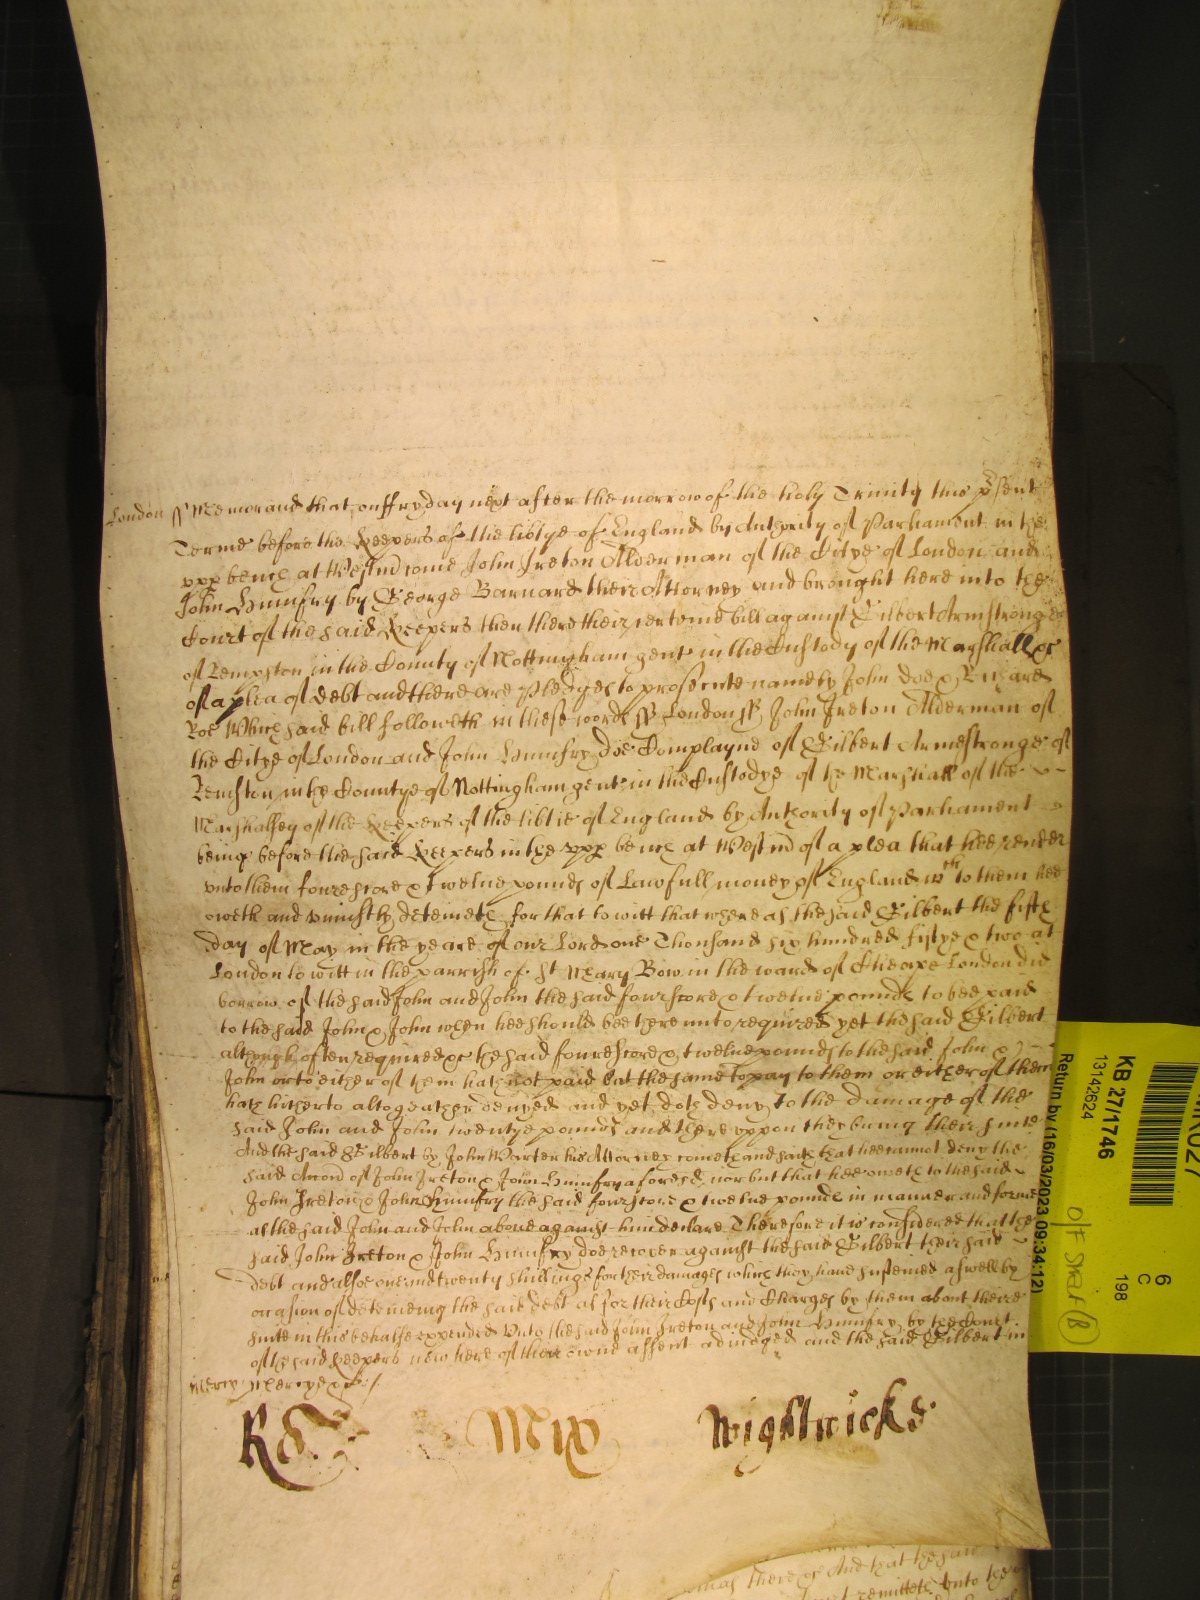 London ss Memorand that on ffryday next after the morrow of the holy Trinity this pſent
Terme before the Keepers of the libtye of England by Authority of Parliament in the
vpp bench at Westm̄ come John Ireton Alderman of the Citye of London and
John Humfry by George Barnard their Attorney and brought here into the
Court of the said Keepers then there their certeine bill against Gilbert Armstronge
of Rempston in the County of Nottingham gent in the Custody of the Marshall &c
of a plea of debt and there are Pledges to prosecute namely John Doe & Richard
Roe Which said bill followeth in these words ss London ss John Ireton Alderman of
the Citye of London and John Humfry doe Complayne of Gilbert Armestronge of
Remston in the Countye of Nottingham gent in the Custodye of the Marshall of the
Marshalsey of the Keepers of the libtie of England by Authority of Parliament
being before the said Keepers in the vpp bench at Westm̄ of a plea that hee render
vnto them fourescore & twelue pounds of Lawfull money of England wch to them hee
oweth and vniustly deteineth for that to witt that where as the said Gilbert the fifth
day of May in the yeare of our Lord one Thousand six hundred fiftye & two at
London to witt in the parrish of St Mary Bow in the ward of Cheape London did
borrow of the said John and John the said fourscore & twelue pounds to bee paid
to the said John & John when hee should bee there vnto required yet the said Gilbert
although often required &c the said fourescore & twelue pounds to the said John &
John or to either of them hath not paid but the same to pay to them or either of them
hath hitherto altogeather denyed and yet doth deny To the damage of the
said John and John twentye pounds and there vppon they bring their suite
And the said Gilbert by John Warter his Attorney cometh and saith that hee cannot deny the
said Accon̄ of John Ireton & John Humfry aforesd nor but that hee oweth to the said
John Ireton & John Humfry the said fourscore & twelue pounds in manner and forme
as the said John and John aboue against him declare Therefore it is considered that the
said John Ireton & John Humfry doe recover against the said Gilbert their said
debt and alsoe one and twenty shillings for their damages which they haue susteined aswell by
occasion of deteineing the said debt as for their Costs and Charges by them about their
suite in this behalfe expended Vnto the said John Ireton and John Humfry by the Court
of the said Keepers now here of their owne assent adiudged and the said Gilbert in
Mercy Mercye &c /
Ro Mix Wightwicke
KB 27/1746
13142624
Return by (16/03/2023 09:34:12)
6
C
198